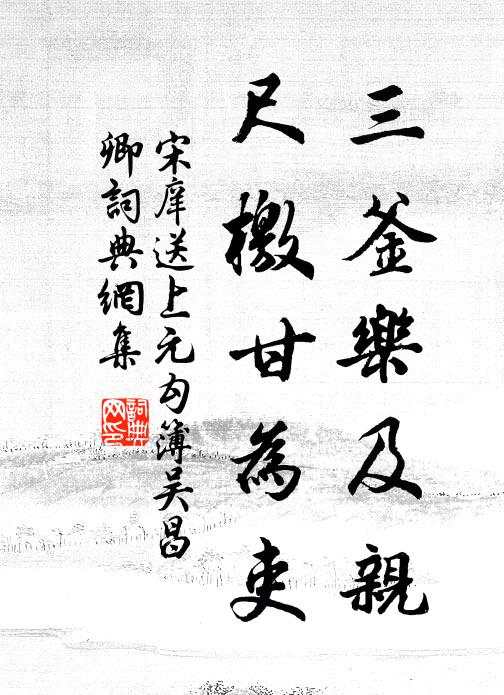 三釜樂及親
尺檄甘為吏
宋庠送上元勾簿吴昌
卿詞典網集
詞典网印